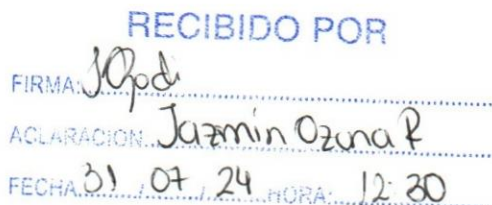 RECIBIDO POR
FIRMA:
ACLARACION Jazmin Ozuna R
FECHA 31 / 07 / 24 HORA: 12:30